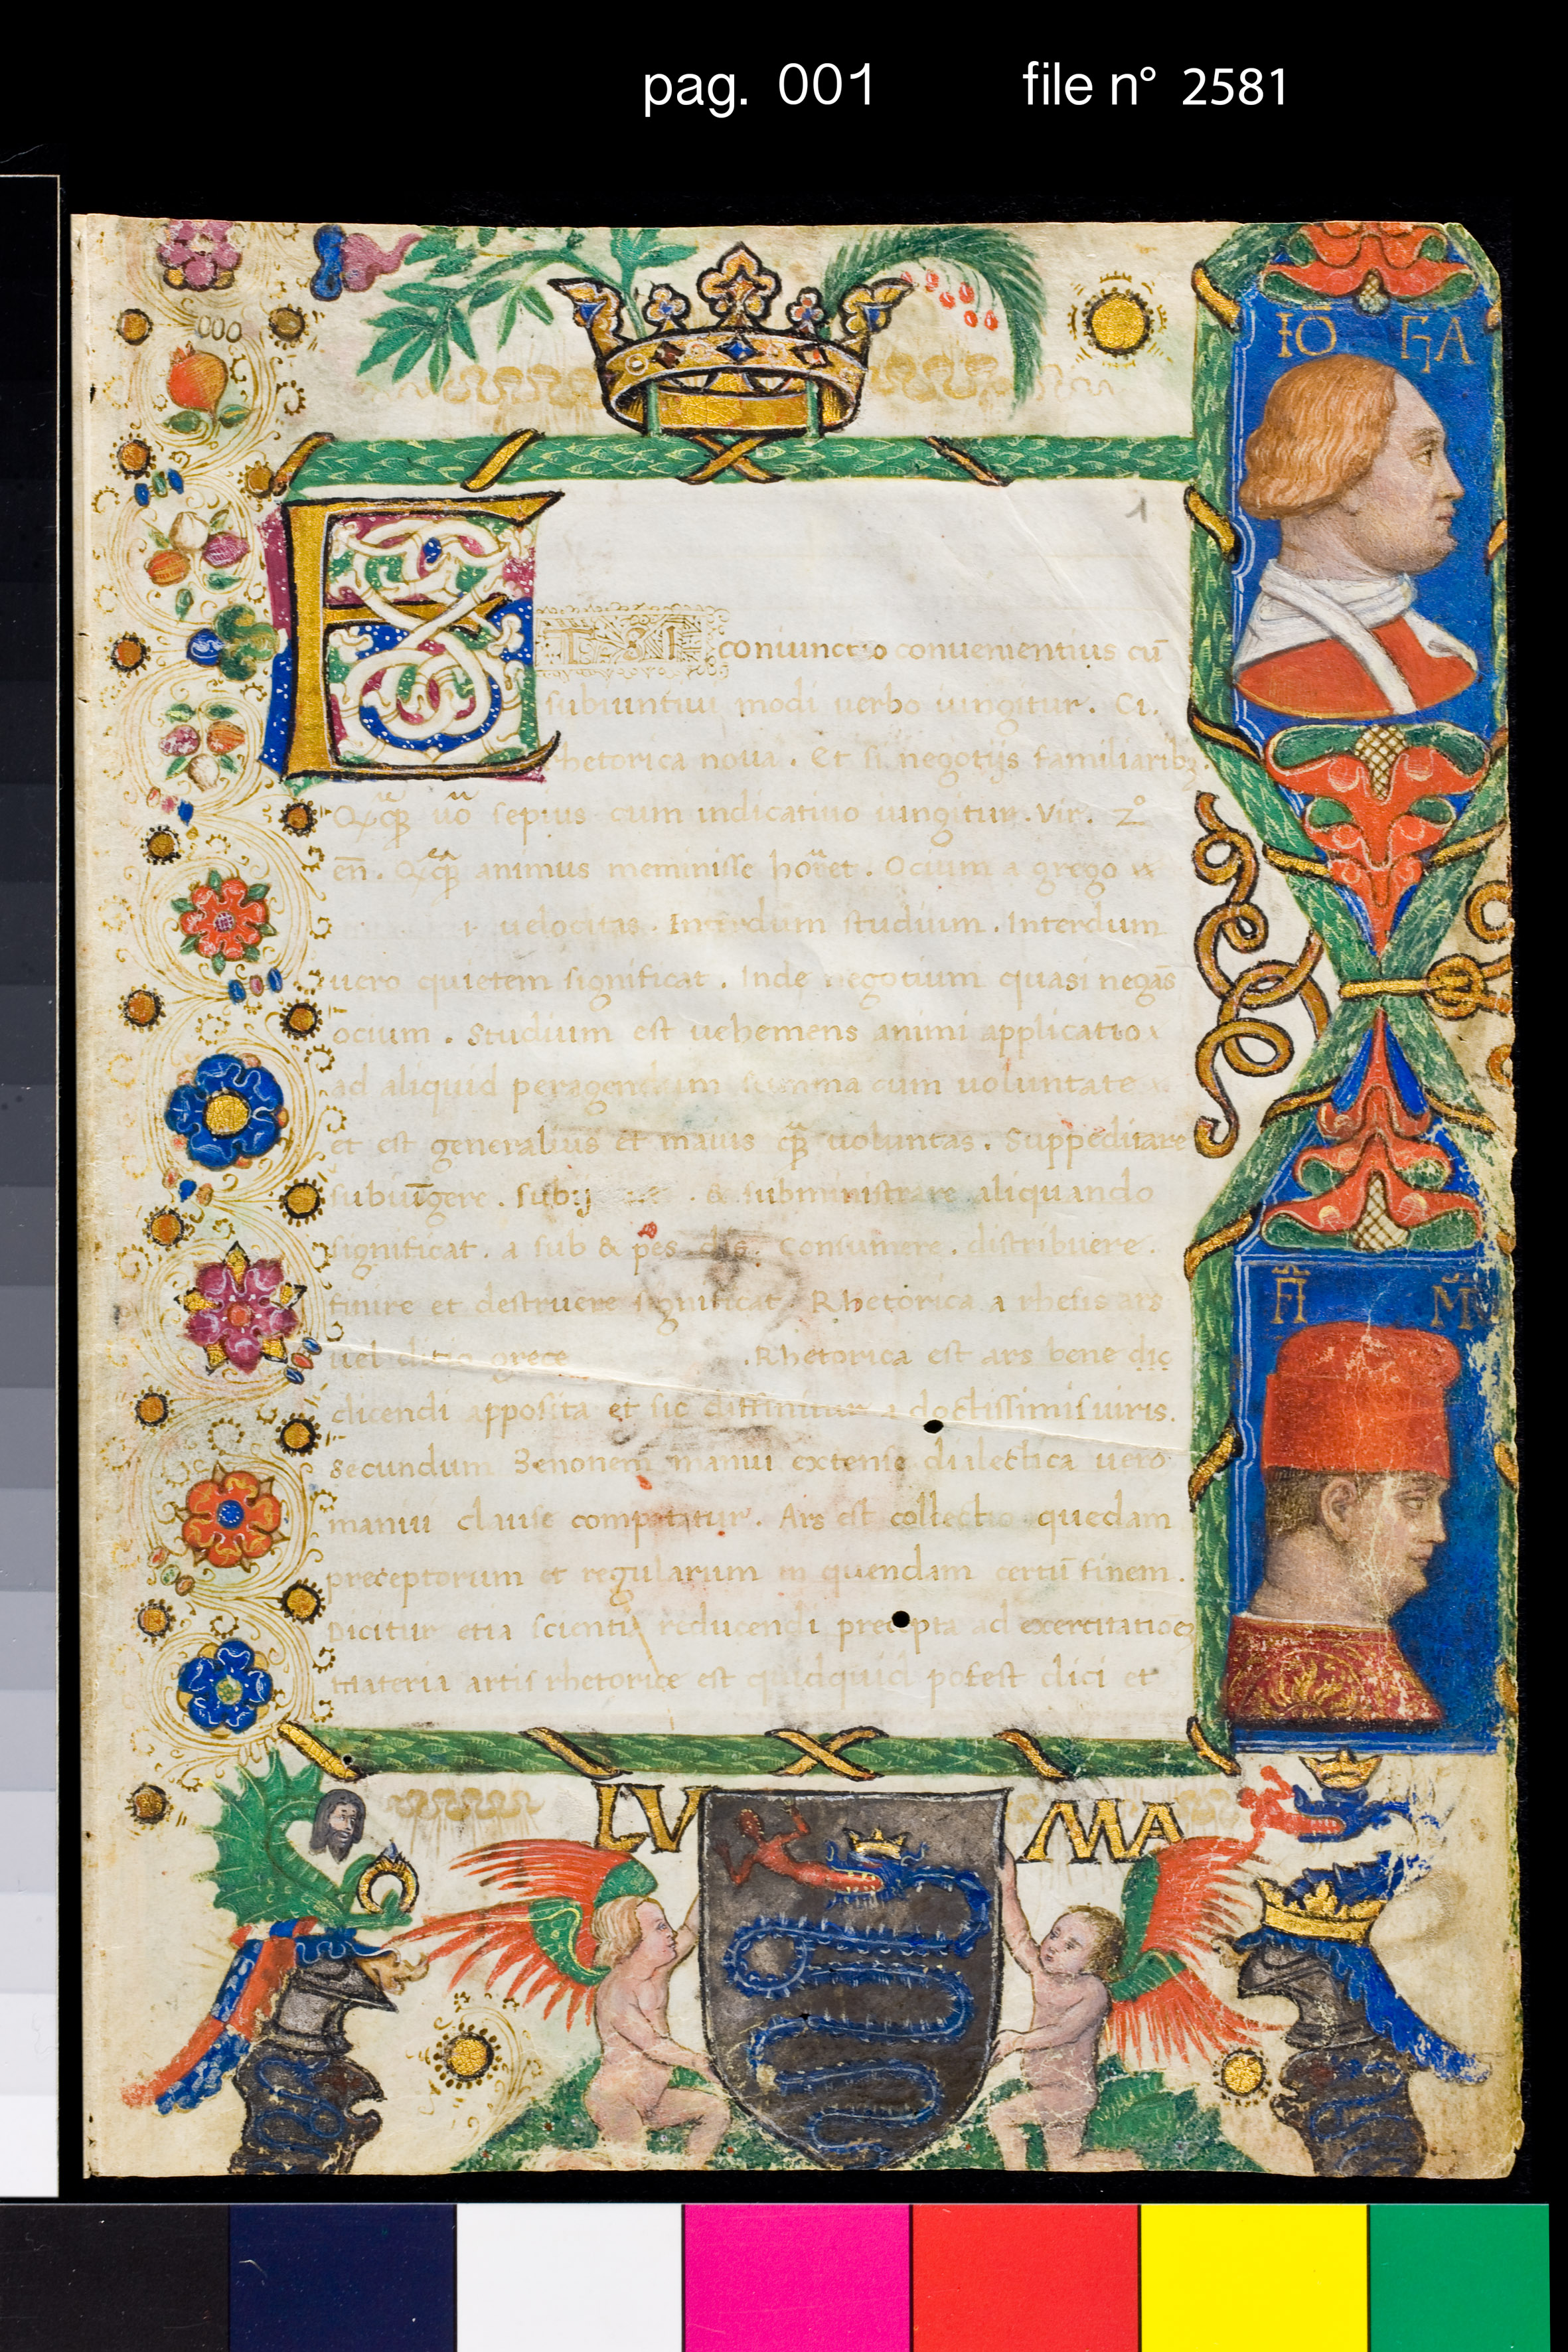 pag. 001 file n° 2581
IŌ GĀ
1
ETSI coniunctio conuenientius cū
subiuntiui modi uerbo iungitur. Ci.
rhetorica noua. Et si negotijs familiaribꝫ.
uō sepius cum indicatiuo iungitur. Vir. 2°
en̄. animus meminisse horret. Ocium a grego
velocitas. Interdum studium. Interdum
uero quietem significat. Inde negotium quasi negās
ocium. Studium est uehemens animi applicatio
ad aliquid peragendum summa cum uoluntate
et est generalius et maius uoluntas. Suppeditare
subiūgere. & subministrare aliquando
significat. a sub & pes dis. Consumere. distribuere.
finire et destruere significat. Rhetorica a rhesis ars
uel dictio grece .Rhetorica est ars bene
dicendi apposita et sic diffinitur a doctissimis uiris.
Secundum Zenonem manui extense dialectica uero
manui clause comparatur. Ars est collectio quedam
preceptorum et regularum in quendam certū finem.
Dicitur etiā scientia reducendi precepta ad
materia artis rhetorice est quidquid potest dici et
LV MA